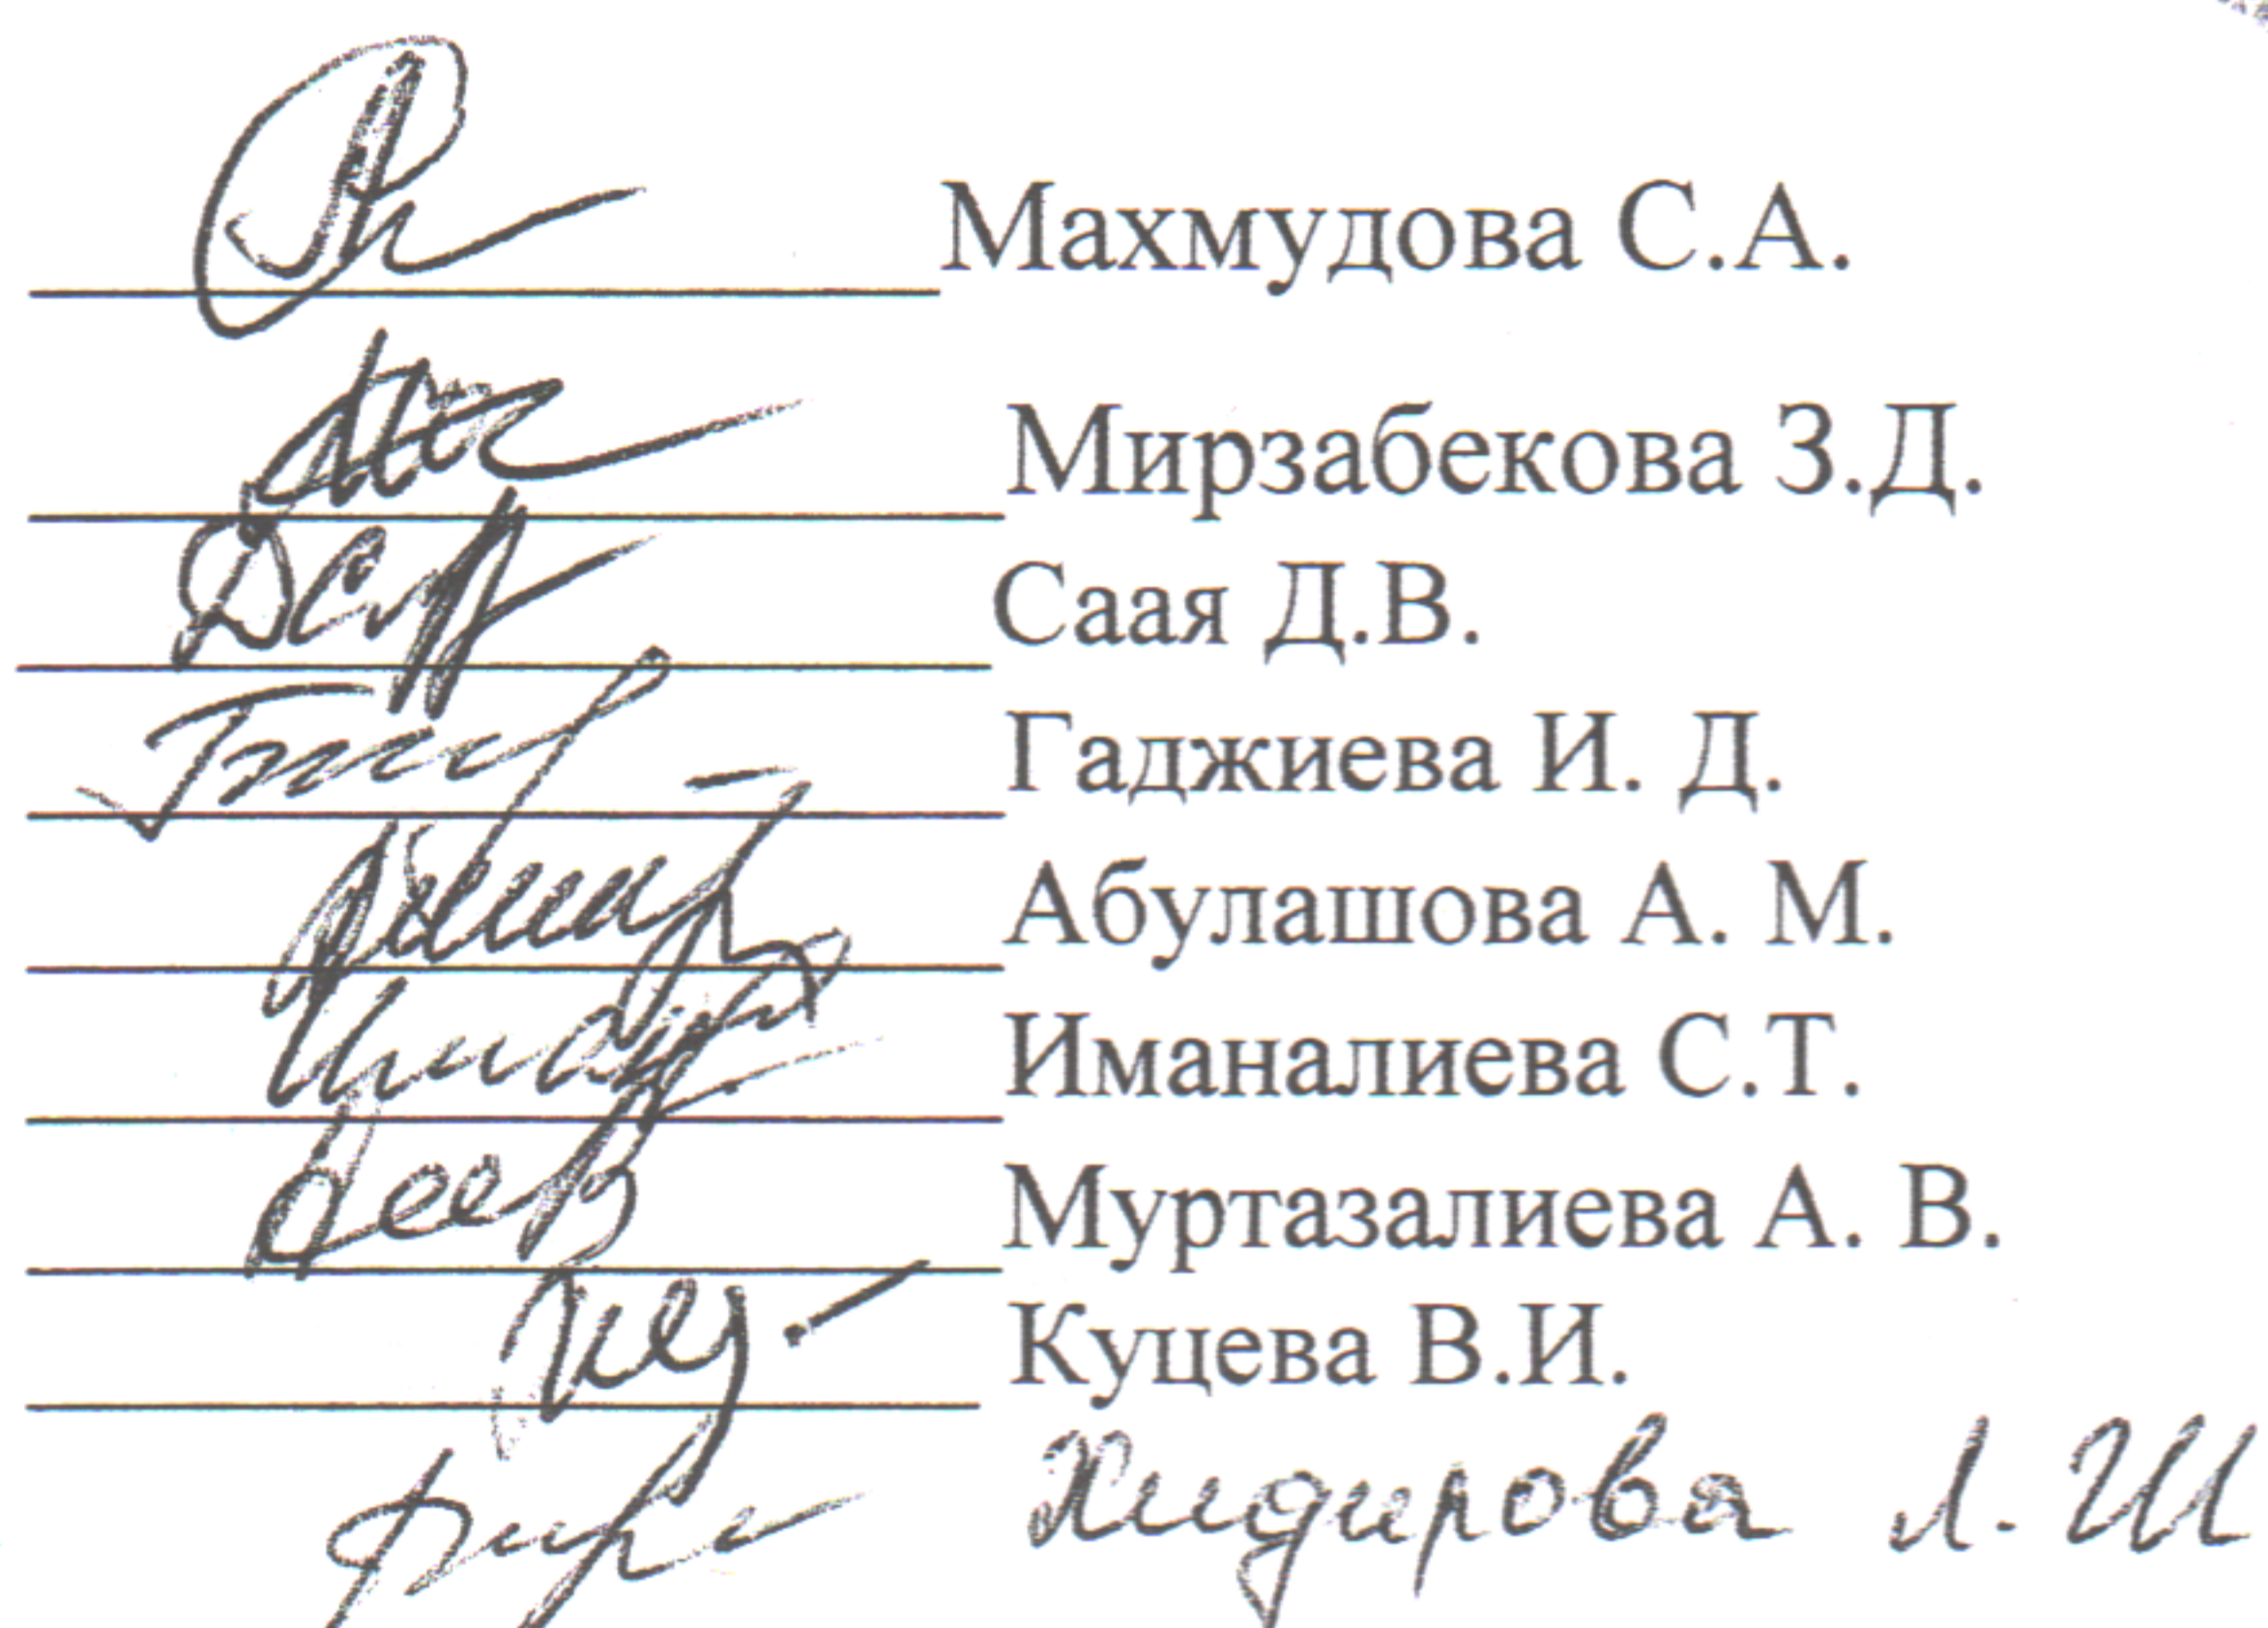 Махмудова С.А.
Мирзабекова З.Д.
Саая Д.В.
Гаджиева И. Д.
Абулашова А. М.
Иманалиева С.Т.
Муртазалиева А. В.
Куцева В.И.
Хидирова Л. Ш